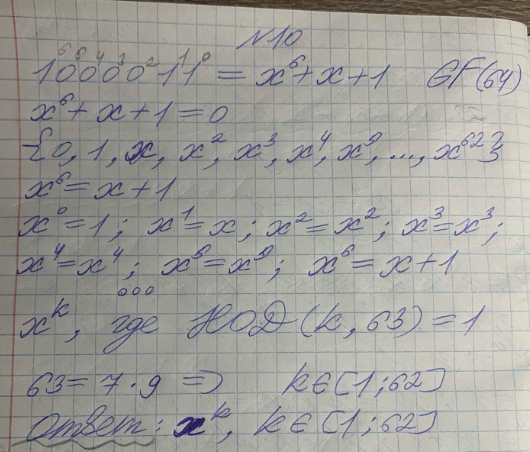 N10
1000011 = x⁶+x+1 GF(64)
x⁶+x+1=0
{0, 1, x, x², x³, x⁴, x⁵, ..., x⁶²}
x⁶=x+1
x⁰=1; x¹=x; x²=x²; x³=x³;
x⁴=x⁴; x⁵=x⁵; x⁶=x+1
ooo
xᵏ, где НОД(k, 63)=1
63=7·9 => k∈[1;62]
Ответ: xᵏ, k∈[1;62]